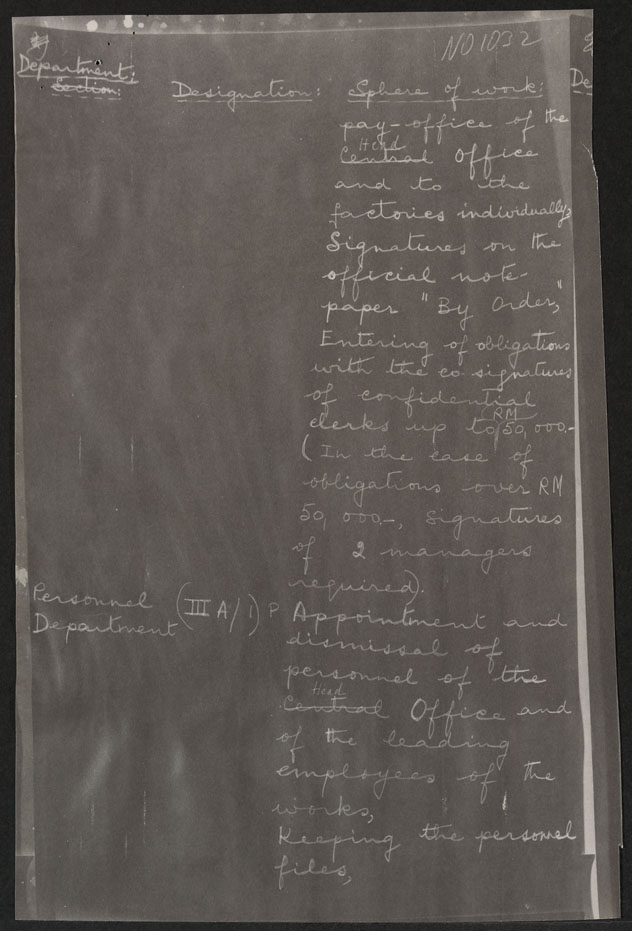 NO 1032
Department:
Section:
Designation: Sphere of work: De
pay-office of the
Head
Central Office
and to the
factories individually,
Signatures on the
official note-
paper "By Order,"
Entering of obligations
with the co signatures
of confidential
RM
clerks up to 50,000.-
(In the case of
obligations over RM
50,000.-, signatures
of 2 managers
required).
Personnel (III A/1) P Appointment and
Department
dismissal of
personnel of the
Head
Central Office and
of the leading
employees of the
works,
Keeping the personnel
files,